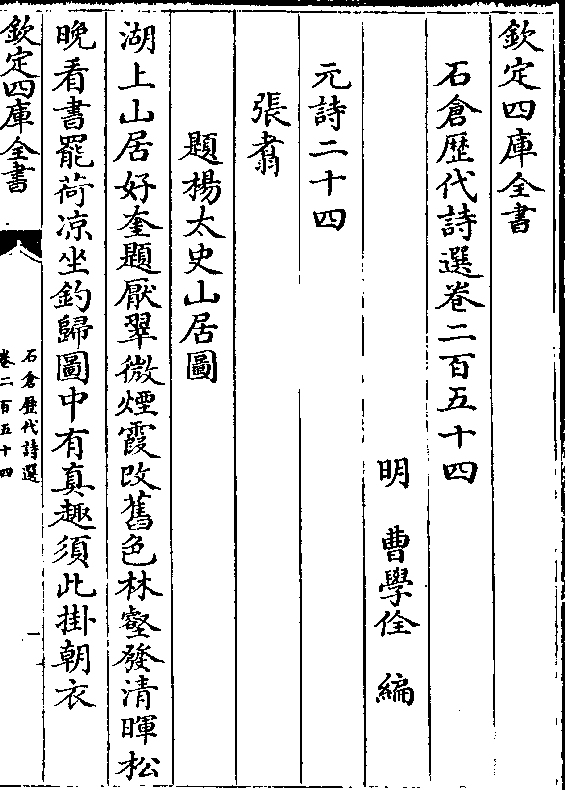 欽定四庫全書
石倉歴代詩選卷二百五十四
明 曹學佺 編
元詩二十四
張翥
題楊太史山居圖
湖上山居好奎題厭翠微煙霞改舊色林壑發清暉松
晚看書罷荷凉坐釣歸圖中有真趣須此掛朝衣
欽定四庫全書
石倉歴代詩選
卷二百五十四
一